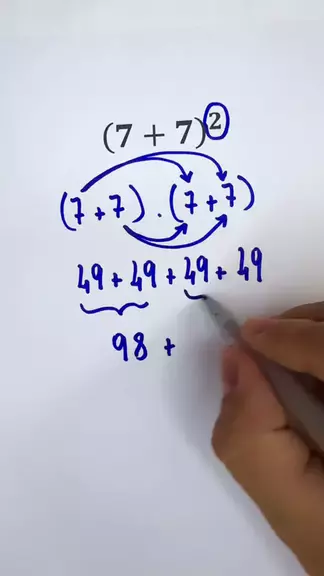 (7 + 7)²
(7 + 7) . (7 + 7)
49 + 49 + 49 + 49
98 +